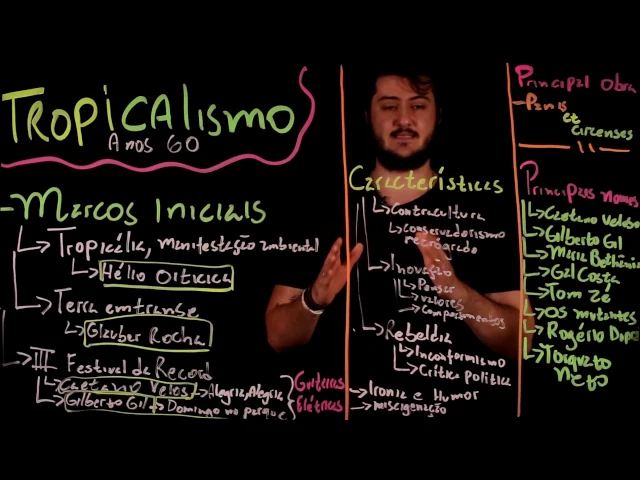 TROPICALISMO
ANOS 60
- MARCOS INICIAIS
Tropicália, manifestação ambiental
Hélio Oiticica
Terra em transe
Glauber Rocha
III Festival da Record
Caetano Veloso Alegria, Alegria
Gilberto Gil Domingo no parque
Guitarras
Elétricas
Características
Contracultura
conservadorismo
retrógrado
Inovação
Pensar
valores
comportamentos
Rebeldia
Inconformismo
Crítica política
Ironia e Humor
miscigenação
Principal obra
- Panis
et
circenses
Principais nomes
Caetano Veloso
Gilberto Gil
Maria Bethânia
Gal Costa
Tom Zé
Os mutantes
Rogério
Torquato
Neto